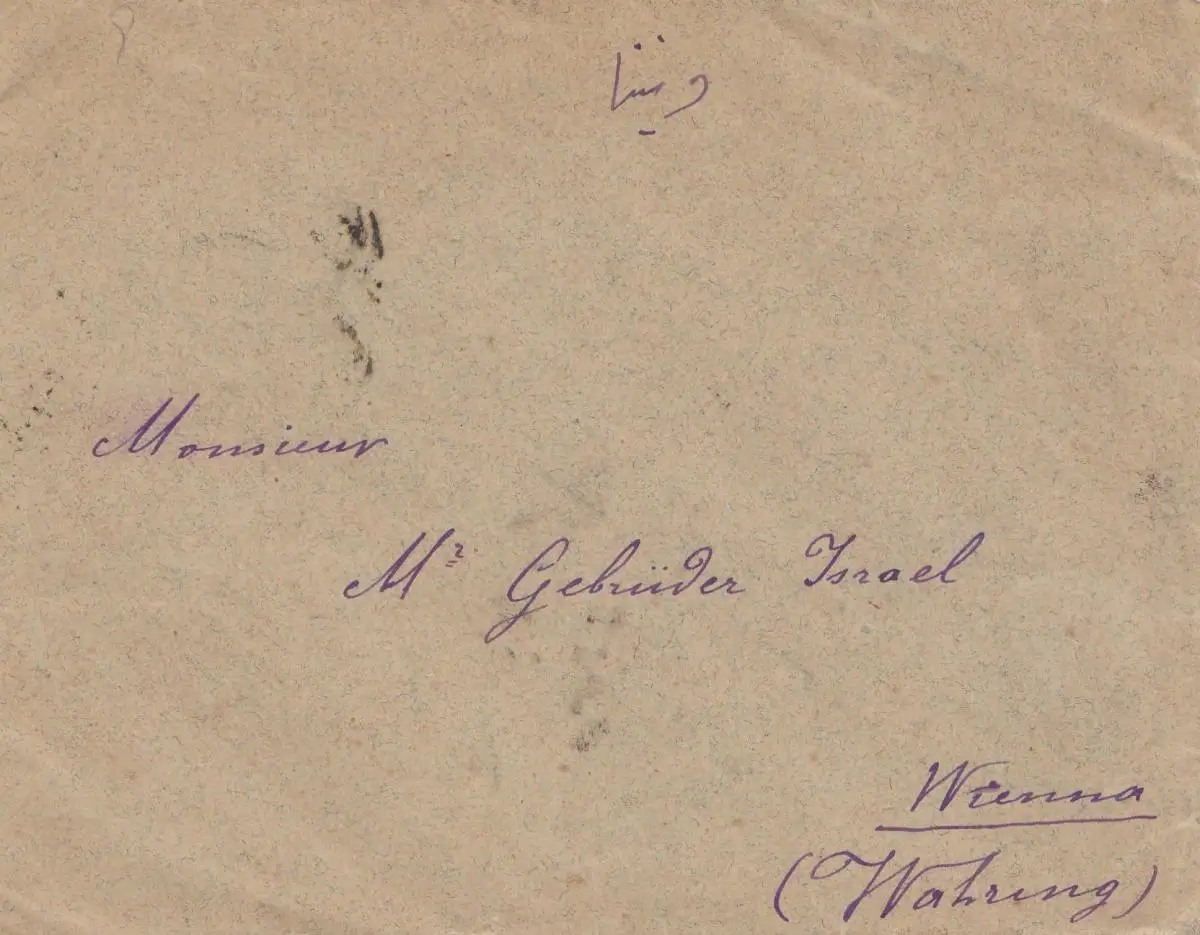 ويتنا
Monsieur
Mr Gebrüder Israel
Wienna
(Wahring)